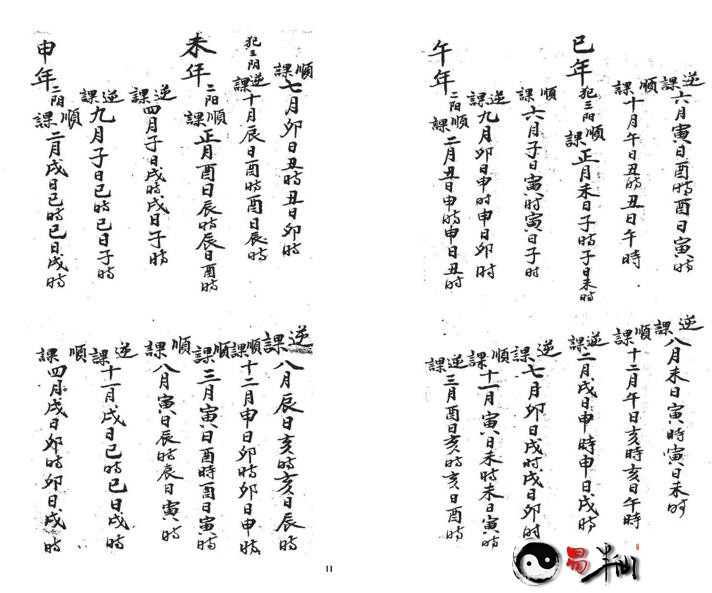 逆課六月寅日酉時酉日寅時
順課十月午日丑時丑日午時
巳年犯三阳順課正月未日子時子日未時
順課六月子日寅时寅日子时
逆課九月卯日申时申日卯时
午年二阳順課二月丑日申時申日丑時
逆課八月未日寅時寅日未时
順課十二月午日亥時亥日午時
逆課二月戌日申時申日戌時
逆課七月卯日戌时戌日卯时
順課十一月寅日未時未日寅時
逆課三月酉日亥時亥日酉時
順課七月卯日丑時丑日卯時
犯三阳逆課十月辰日酉時酉日辰時
未年二阳順課正月酉日辰時辰日酉時
逆課四月子日戌時戌日子時
逆課九月子日巳時巳日子時
申年二阳順課二月戌日巳時巳日戌時
逆課八月辰日亥時亥日辰時
順課十二月申日卯時卯日申時
順課三月寅日酉時酉日寅時
順課八月寅日辰時辰日寅時
逆課十一月戌日巳時巳日戌時
順課四月戌日卯時卯日戌時
11
易半仙